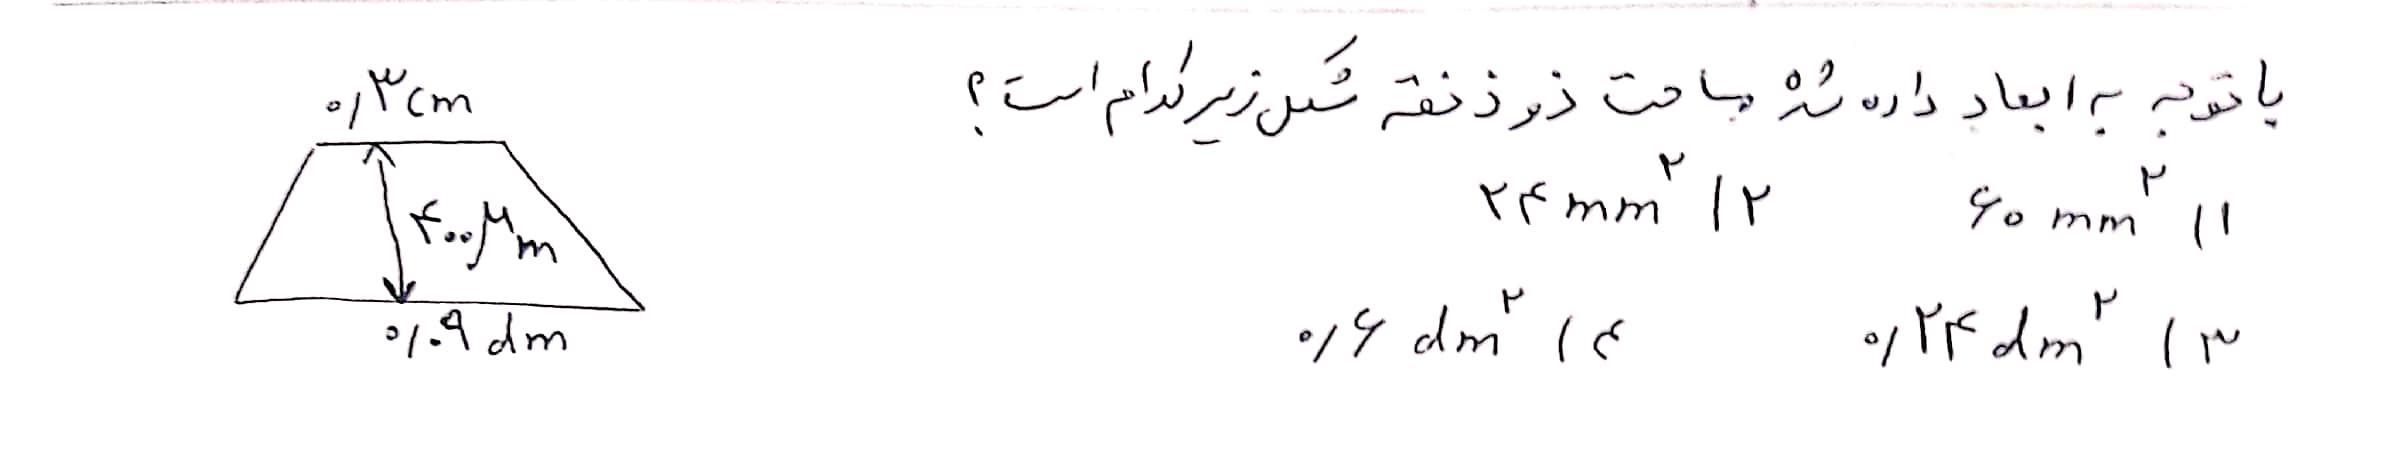 با توجه به ابعاد داده شده مساحت ذوذنقه شکل زیر کدام است؟
۱) ۶۰ mm^۲ ۲) ۲۴ mm^۲
۳) ۰/۲۴ dm^۲ ۴) ۰/۶ dm^۲
۰/۳ cm
۴۰۰ μm
۰/۰۹ dm